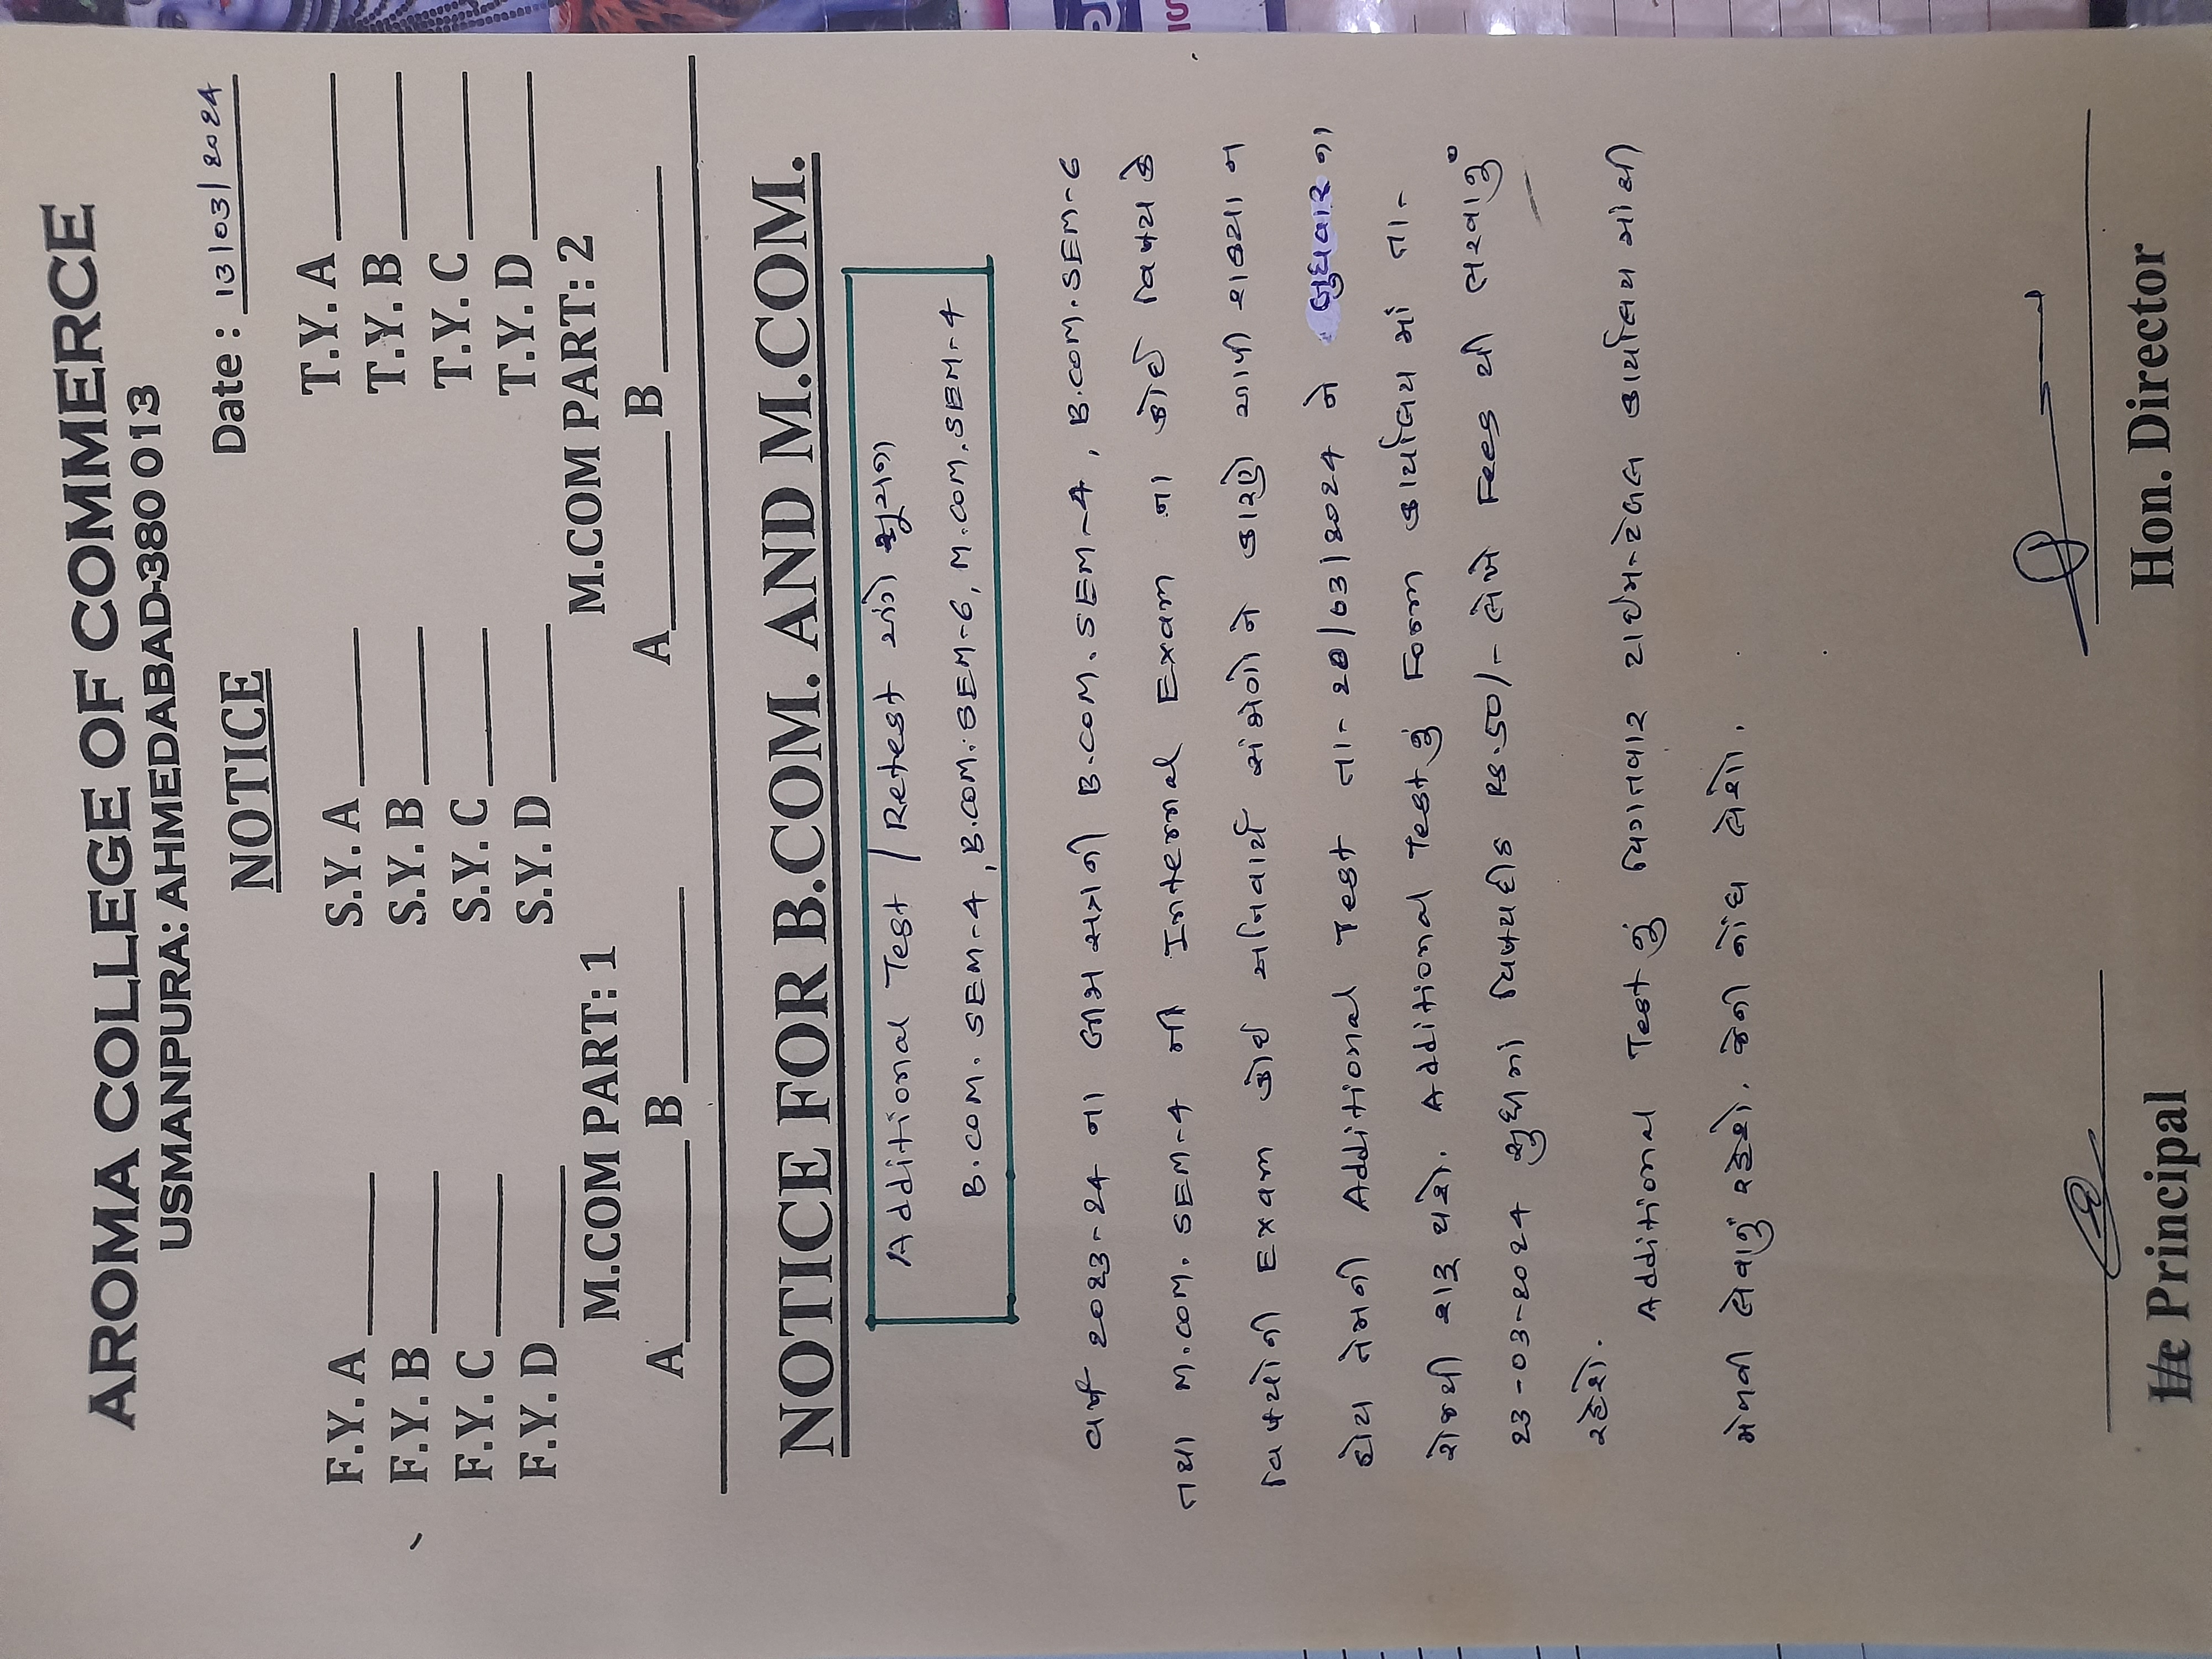 AROMA COLLEGE OF COMMERCE
USMANPURA: AHMEDABAD-380 013
NOTICE
Date : 13/03/2024
F.Y. A ____ S.Y. A ____ T.Y. A ____
F.Y. B ____ S.Y. B ____ T.Y. B ____
F.Y. C ____ S.Y. C ____ T.Y. C ____
F.Y. D ____ S.Y. D ____ T.Y. D ____
M.COM PART: 1 M.COM PART: 2
A ____ B ____ A ____ B ____
NOTICE FOR B.COM. AND M.COM.
Additional Test / Retest અંગે સૂચના
B.COM. SEM-4, B.COM. SEM-6, M.COM. SEM-4
વર્ષ 2023-24 ના બીજા સત્રની B.COM. SEM-4, B.COM. SEM-6
તથા M.COM. SEM-4 ની Internal Exam ના કોઈ વિષય કે
વિષયોની Exam કોઈ અનિવાર્ય સંજોગો ને કારણે આપી શક્યા ન
હોય તેમની Additional Test તા- 20/03/2024 ને બુધવાર ના
રોજથી શરૂ થશે. Additional Test નું Form કાર્યાલય માં તા-
23-03-2024 સુધીમાં વિષયદીઠ RS.50/- લેખે Fees થી ભરવાનું
રહેશે.
Additional Test નું વિગતવાર ટાઈમ-ટેબલ કાર્યાલય માંથી
મેળવી લેવાનું રહેશે. જેની નોંધ લેશો.
Principal Hon. Director